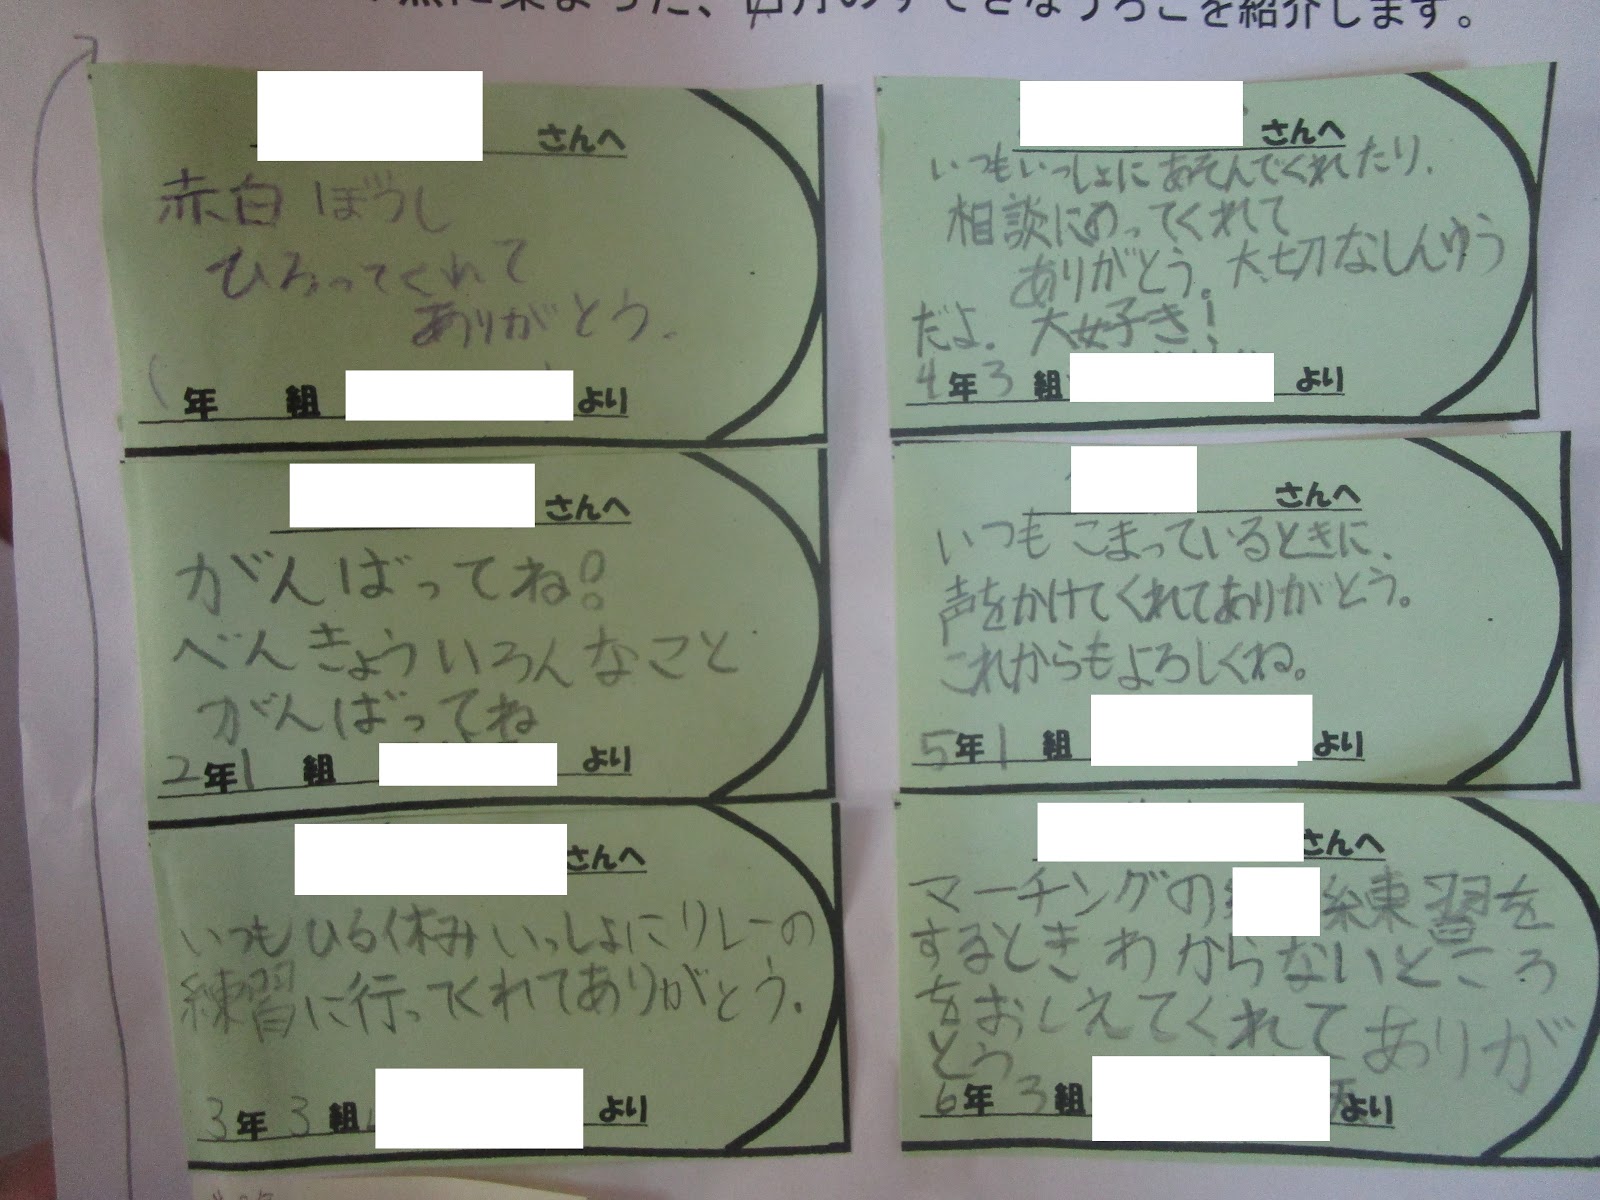 に集まった、四月のすてきなうろこを紹介します。
さんへ
赤白ぼうし
ひろってくれて
ありがとう.
年 組 より
さんへ
がんばってね!
べんきょういろんなこと
がんばってね
2年1 組 より
さんへ
いつもひる休みいっしょにリレーの
練習に行ってくれてありがとう.
3年3組 より
さんへ
いつもいっしょにあそんでくれたり.
相談にのってくれて
ありがとう。大切なしんゆう
だよ. 大好き!
4年3組 より
さんへ
いつもこまっているときに、
声をかけてくれてありがとう。
これからもよろしくね。
5年1 組 より
さんへ
マーチングの 練習を
するときわからないところ
をおしえてくれてありが
とう
6年3組 より